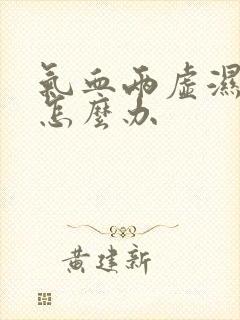 氣血兩虛濕
怎麼办
黄建新